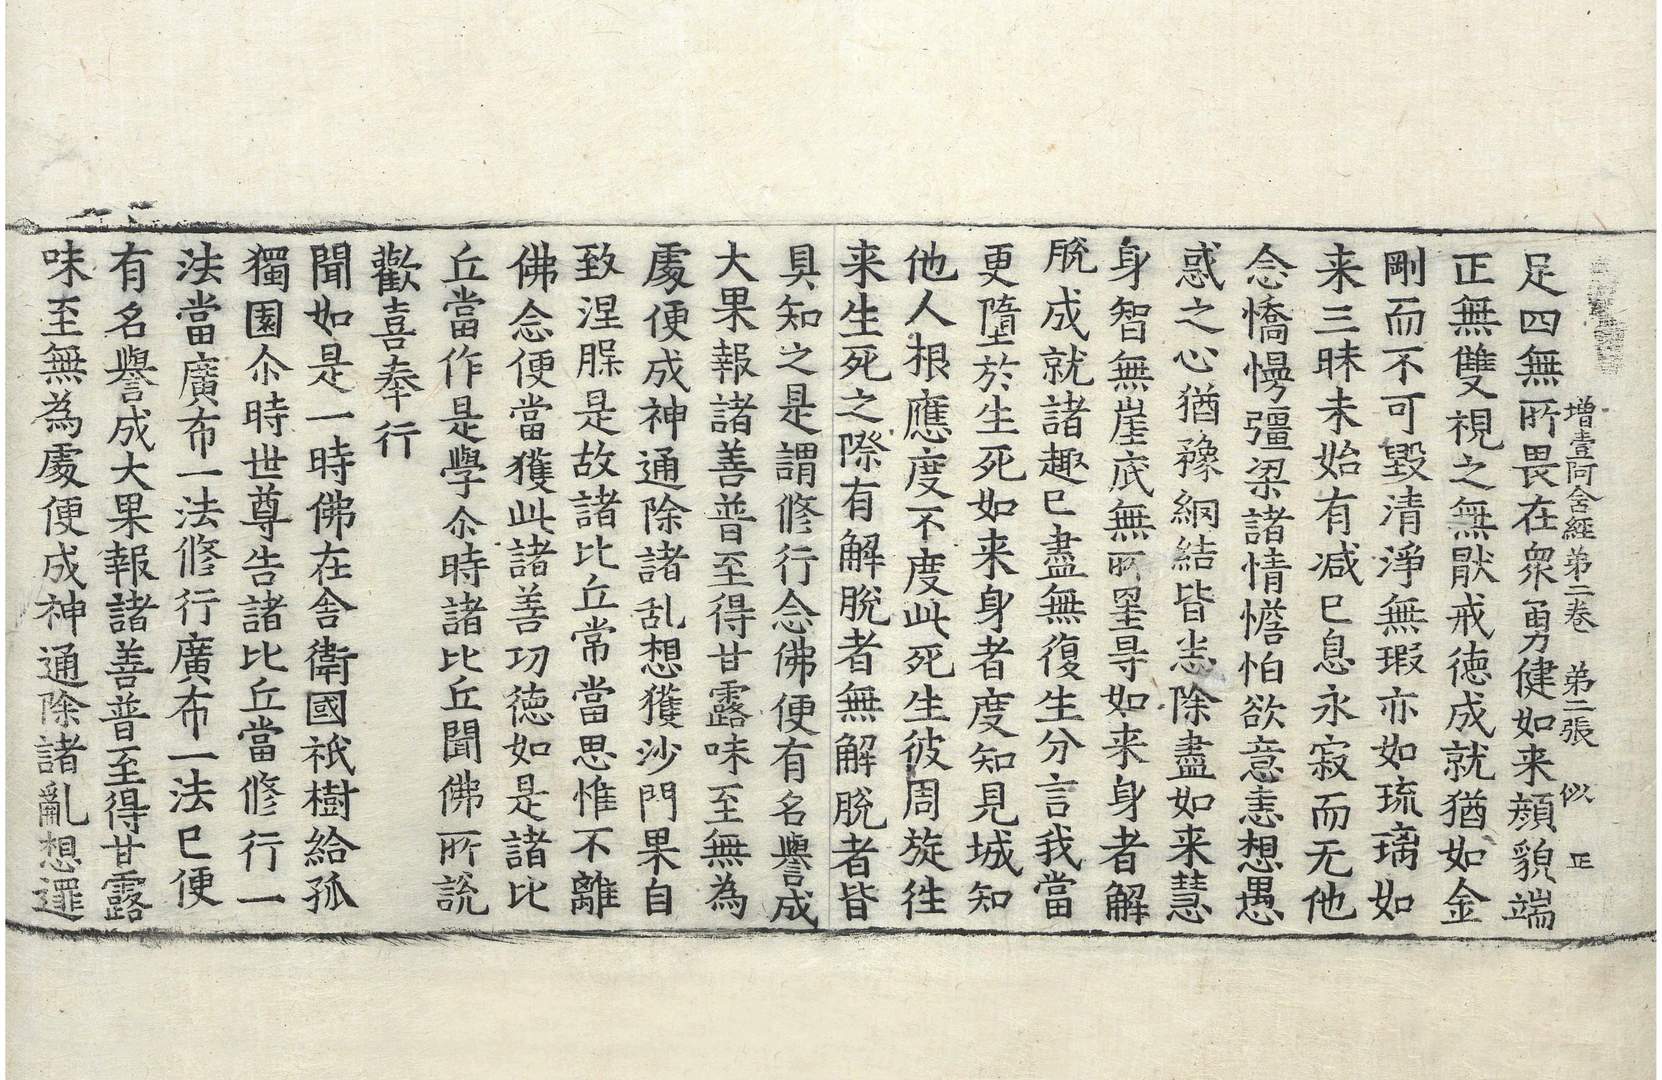 增壹阿含經弟二卷　弟二張　似　正
足四無所畏在衆勇健如来顔貌端
正無雙視之無猒戒德成就猶如金
剛而不可毀清淨無瑕亦如琉璃如
来三昧未始有减巳息永寂而无他
念憍慢彊梁諸情憺怕欲意恚想愚
惑之心猶豫綱結皆悉除盡如来慧
身智無崖底無所罣㝵如来身者解
脫成就諸趣巳盡無復生分言我當
更墮於生死如来身者度知見城知
他人根應度不度此死生彼周旋徃
来生死之際有解脫者無解脫者皆
具知之是謂修行念佛便有名譽成
大果報諸善普至得甘露味至無為
處便成神通除諸乱想獲沙門果自
致涅槃是故諸比丘常當思惟不離
佛念便當獲此諸善功德如是諸比
丘當作是學尒時諸比丘聞佛所說
歡喜奉行
聞如是一時佛在舍衛國祇樹給孤
獨園尒時世尊告諸比丘當修行一
法當廣布一法修行廣布一法巳便
有名譽成大果報諸善普至得甘露
味至無為處便成神通除諸亂想逻